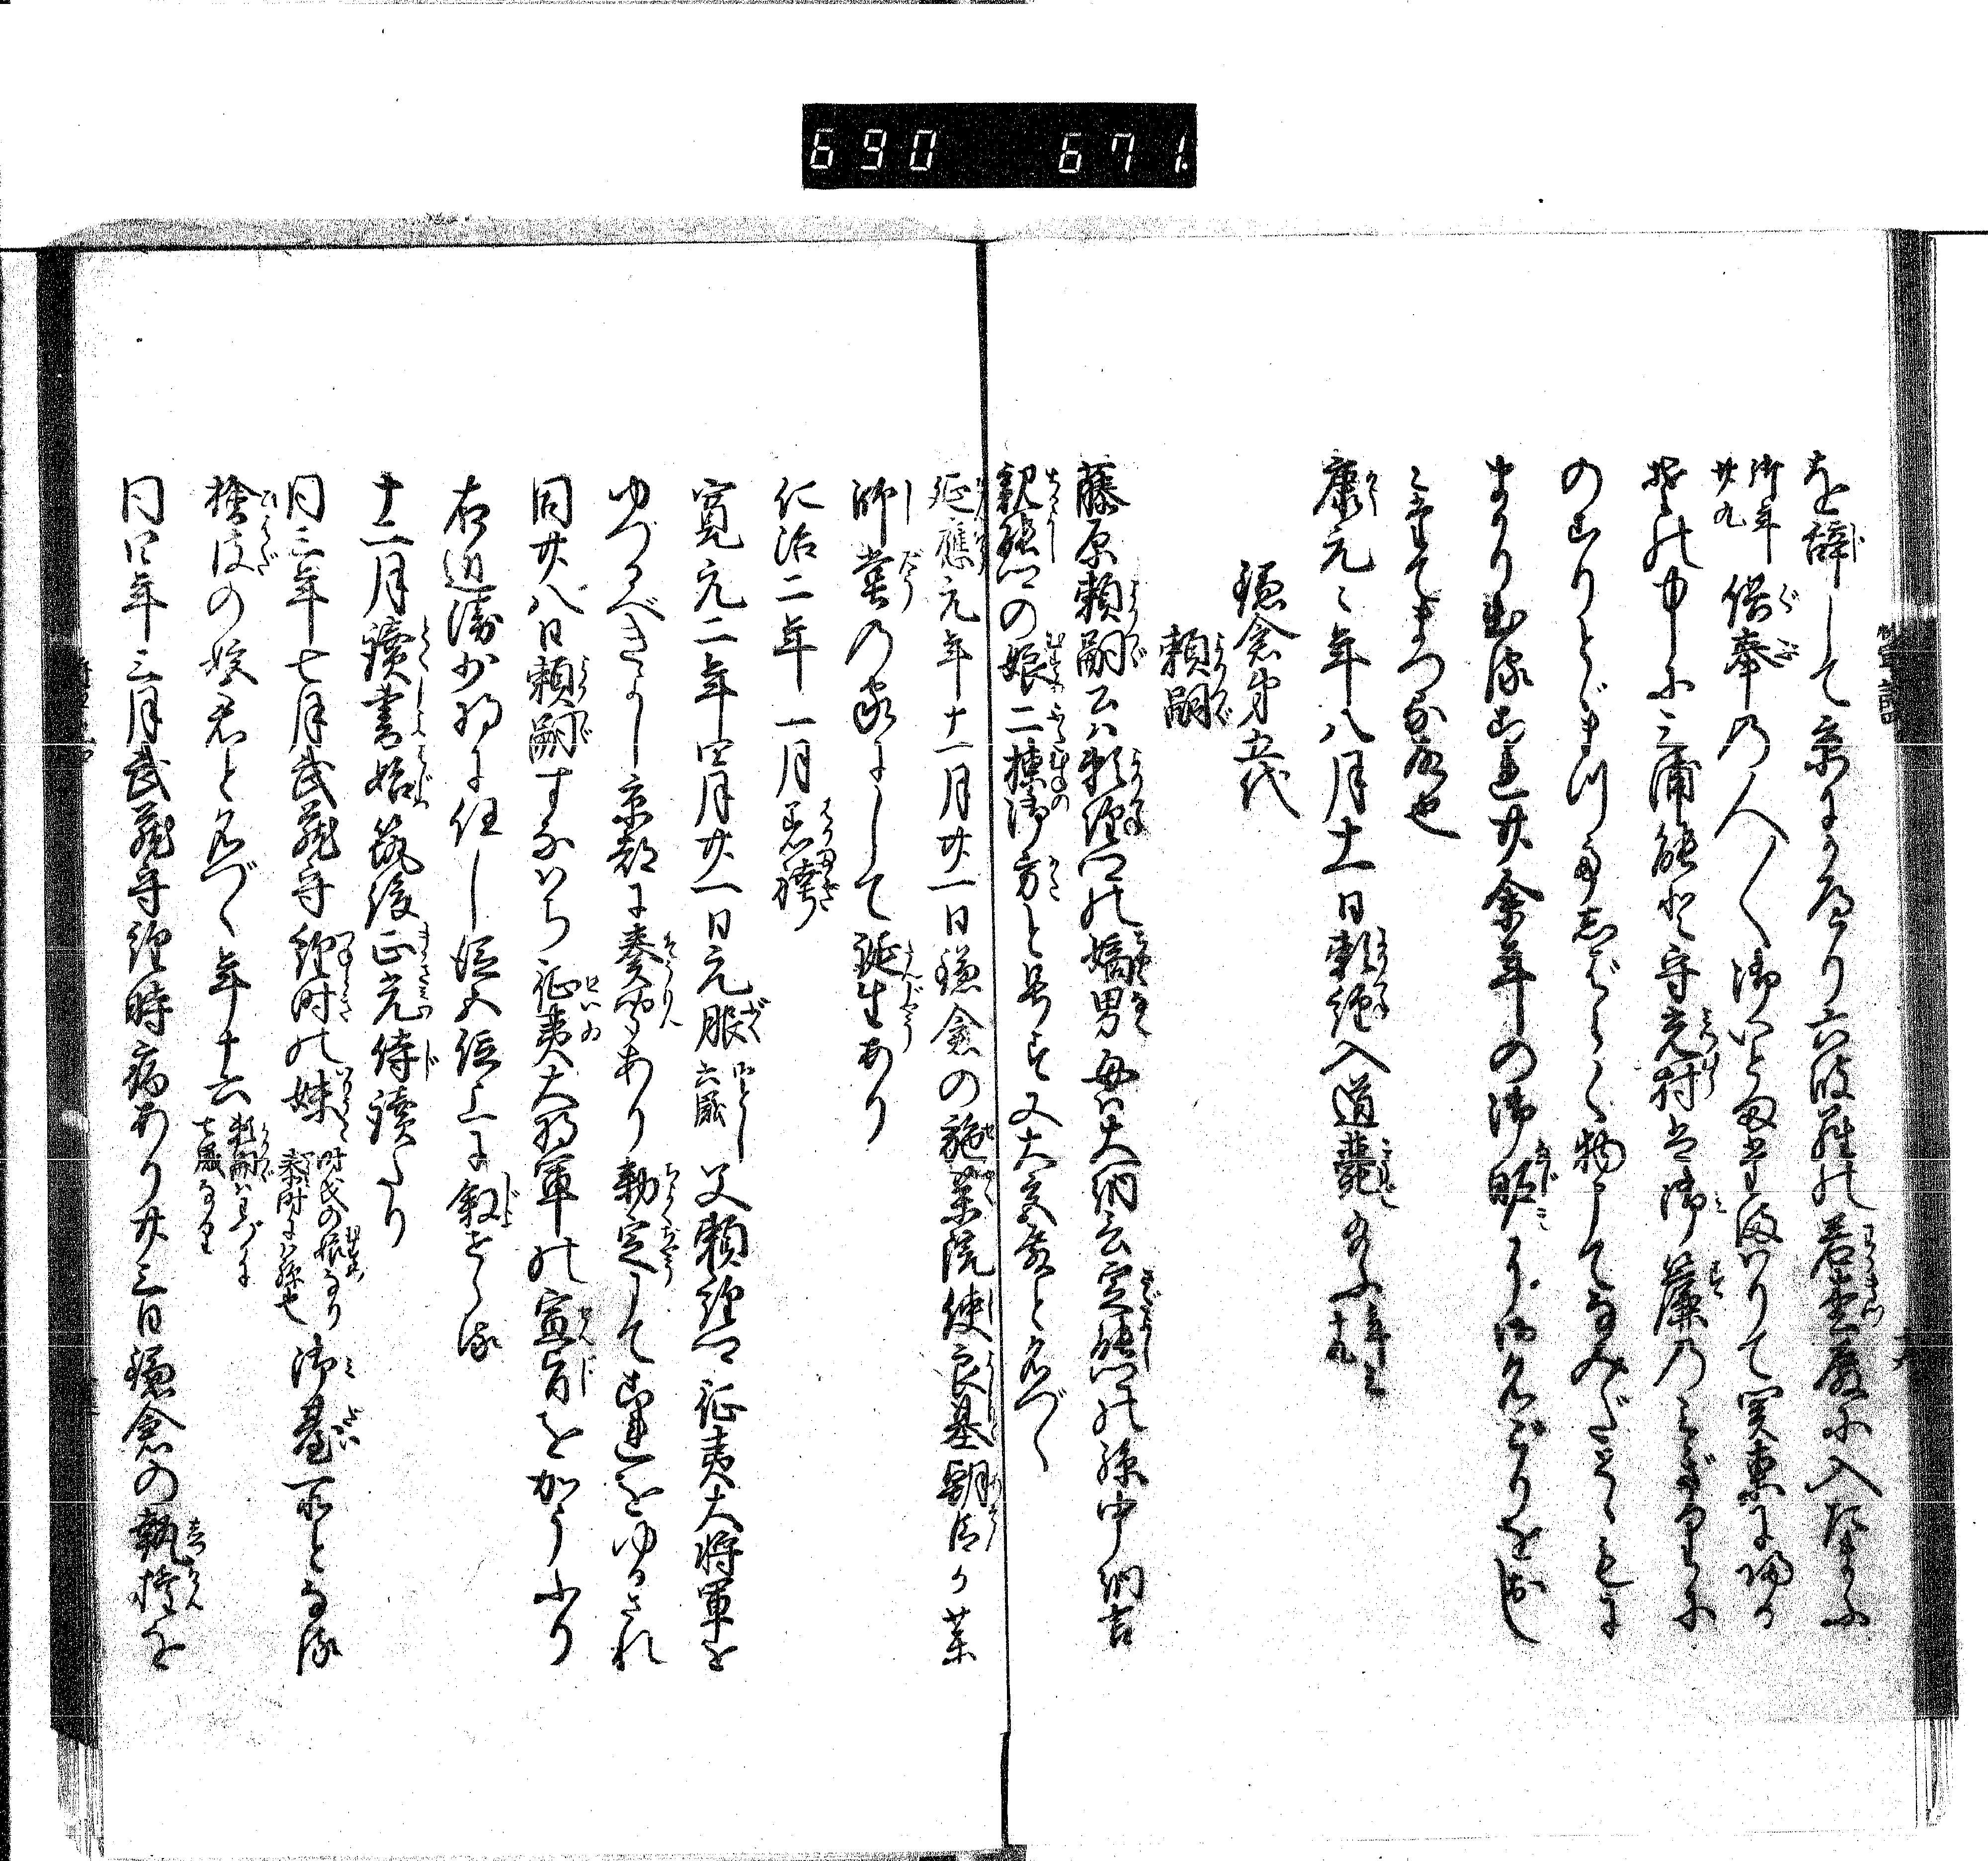 690 671
を辞して京にかへり六波羅の若松殿に入たまふ
御年廿九 供奉の人〳〵御いとま給はりて関東に帰る
其の中に三浦能登守光村は御簾のみぎりに
のこりとゞまつてしばらく物申てなみだ
まり出る これ廿余年の御昵 御名ごりを
て
康元〻年八月十一日頼経入道薨 給ふ 年三十九
鎌倉第五代
頼嗣
藤原頼嗣公は頼経公の嫡男母は大納言定能公の孫中納言
親能公の娘二棟御方と号す又大宮殿と名づく
延應元年十一月廿一日鎌倉の施薬院使良基朝臣が薬
師堂の家にして誕生あり
仁治二年一月着袴
寛元二年四月廿一日元服 御とし六歳 父頼經公征夷大将軍を
ゆづるべきよし京都に奏聞あり勅定してこれをゆるされ
同廿八日頼嗣すなはち征夷大将軍の宣旨をかうふり
右近衛少将に任し従五位上に叙せらる
十二月讀書始筑後正光侍讀たり
同三年七月武蔵守經時の妹 時氏の娘なり 泰時には孫也 御臺所となる
檜皮の姫君と名づく年十六 頼嗣はわづかに七歳なり
同四年三月武蔵守經時病あり廿三日鎌倉の執権を